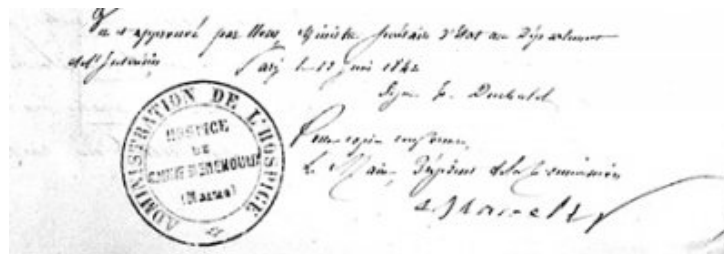 Vu et approuvé par Nous, Ministre Secrétaire d'État au Département
de l'Intérieur, Paris le 13 juin 1842
Signé
Pour copie conforme,
Le Maire, Président de la Commission
ADMINISTRATION DE L'HOSPICE
HOSPICE
DE
(Marne)